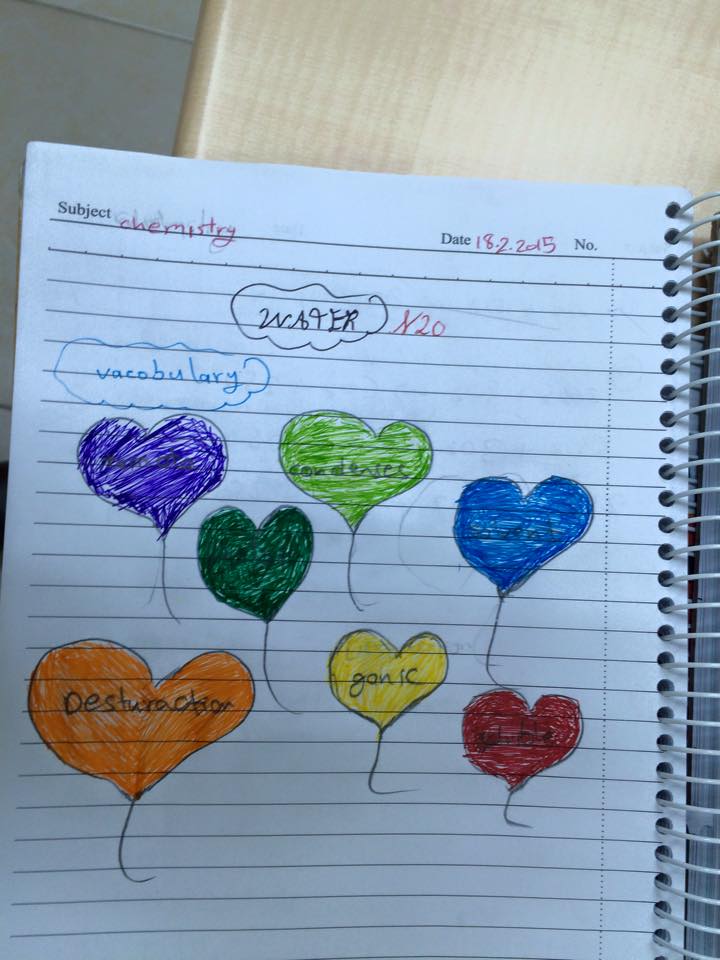 Subject chemistry Date 18.2.2015 No.
WATER N20
vacobulary
condenses
solvent
Desturaction
gonic
soluble